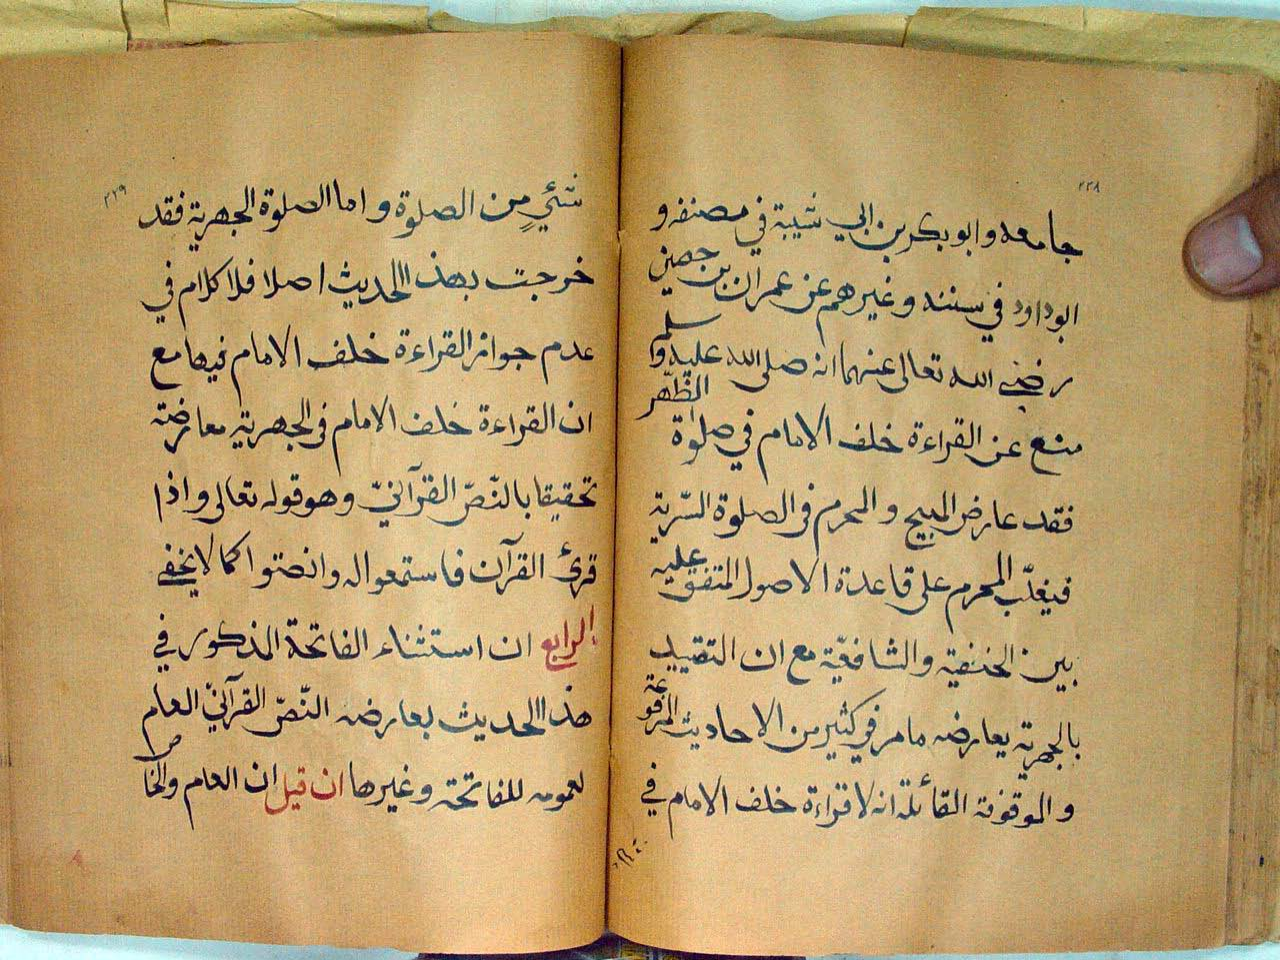 ٢٢٨
جامعه وابوبكر بن ابي شيبة في مصنفه و
ابوداود في سننه وغيرهم عن عمران بن حصين
رضي الله تعالى عنهما انه صلى الله عليه وسلم
منع عن القراءة خلف الامام في صلوة الظهر
فقد عارض المبيح والمحرم في الصلوة السّرية
فيغلّب المحرم على قاعدة الاصول المتفق عليه
بين الحنفية والشافعيّة مع ان التقييد
بالجهرية يعارضه ما مر في كثير من الاحاديث المرفوعة
والموقوفة القائلة انه لا قراءة خلف الامام في
٢٢٩
شئيٍ من الصلوة واما الصلوة الجهرية فقد
خرجت بهذا الحديث اصلا فلا كلام في
عدم جواز القراءة خلف الامام فيها مع
ان القراءة خلف الامام في الجهرية معارضة
تحقيقا بالنّصّ القرآنيّ وهو قوله تعالى واذا
قرئ القرآن فاستمعوا له وانصتوا كما لا يخفى
الرابع ان استثناء الفاتحة المذكور في
هذا الحديث يعارضه النّصّ القرآنيّ العام
لعمومه للفاتحة وغيرها ان قيل ان العام والخاص